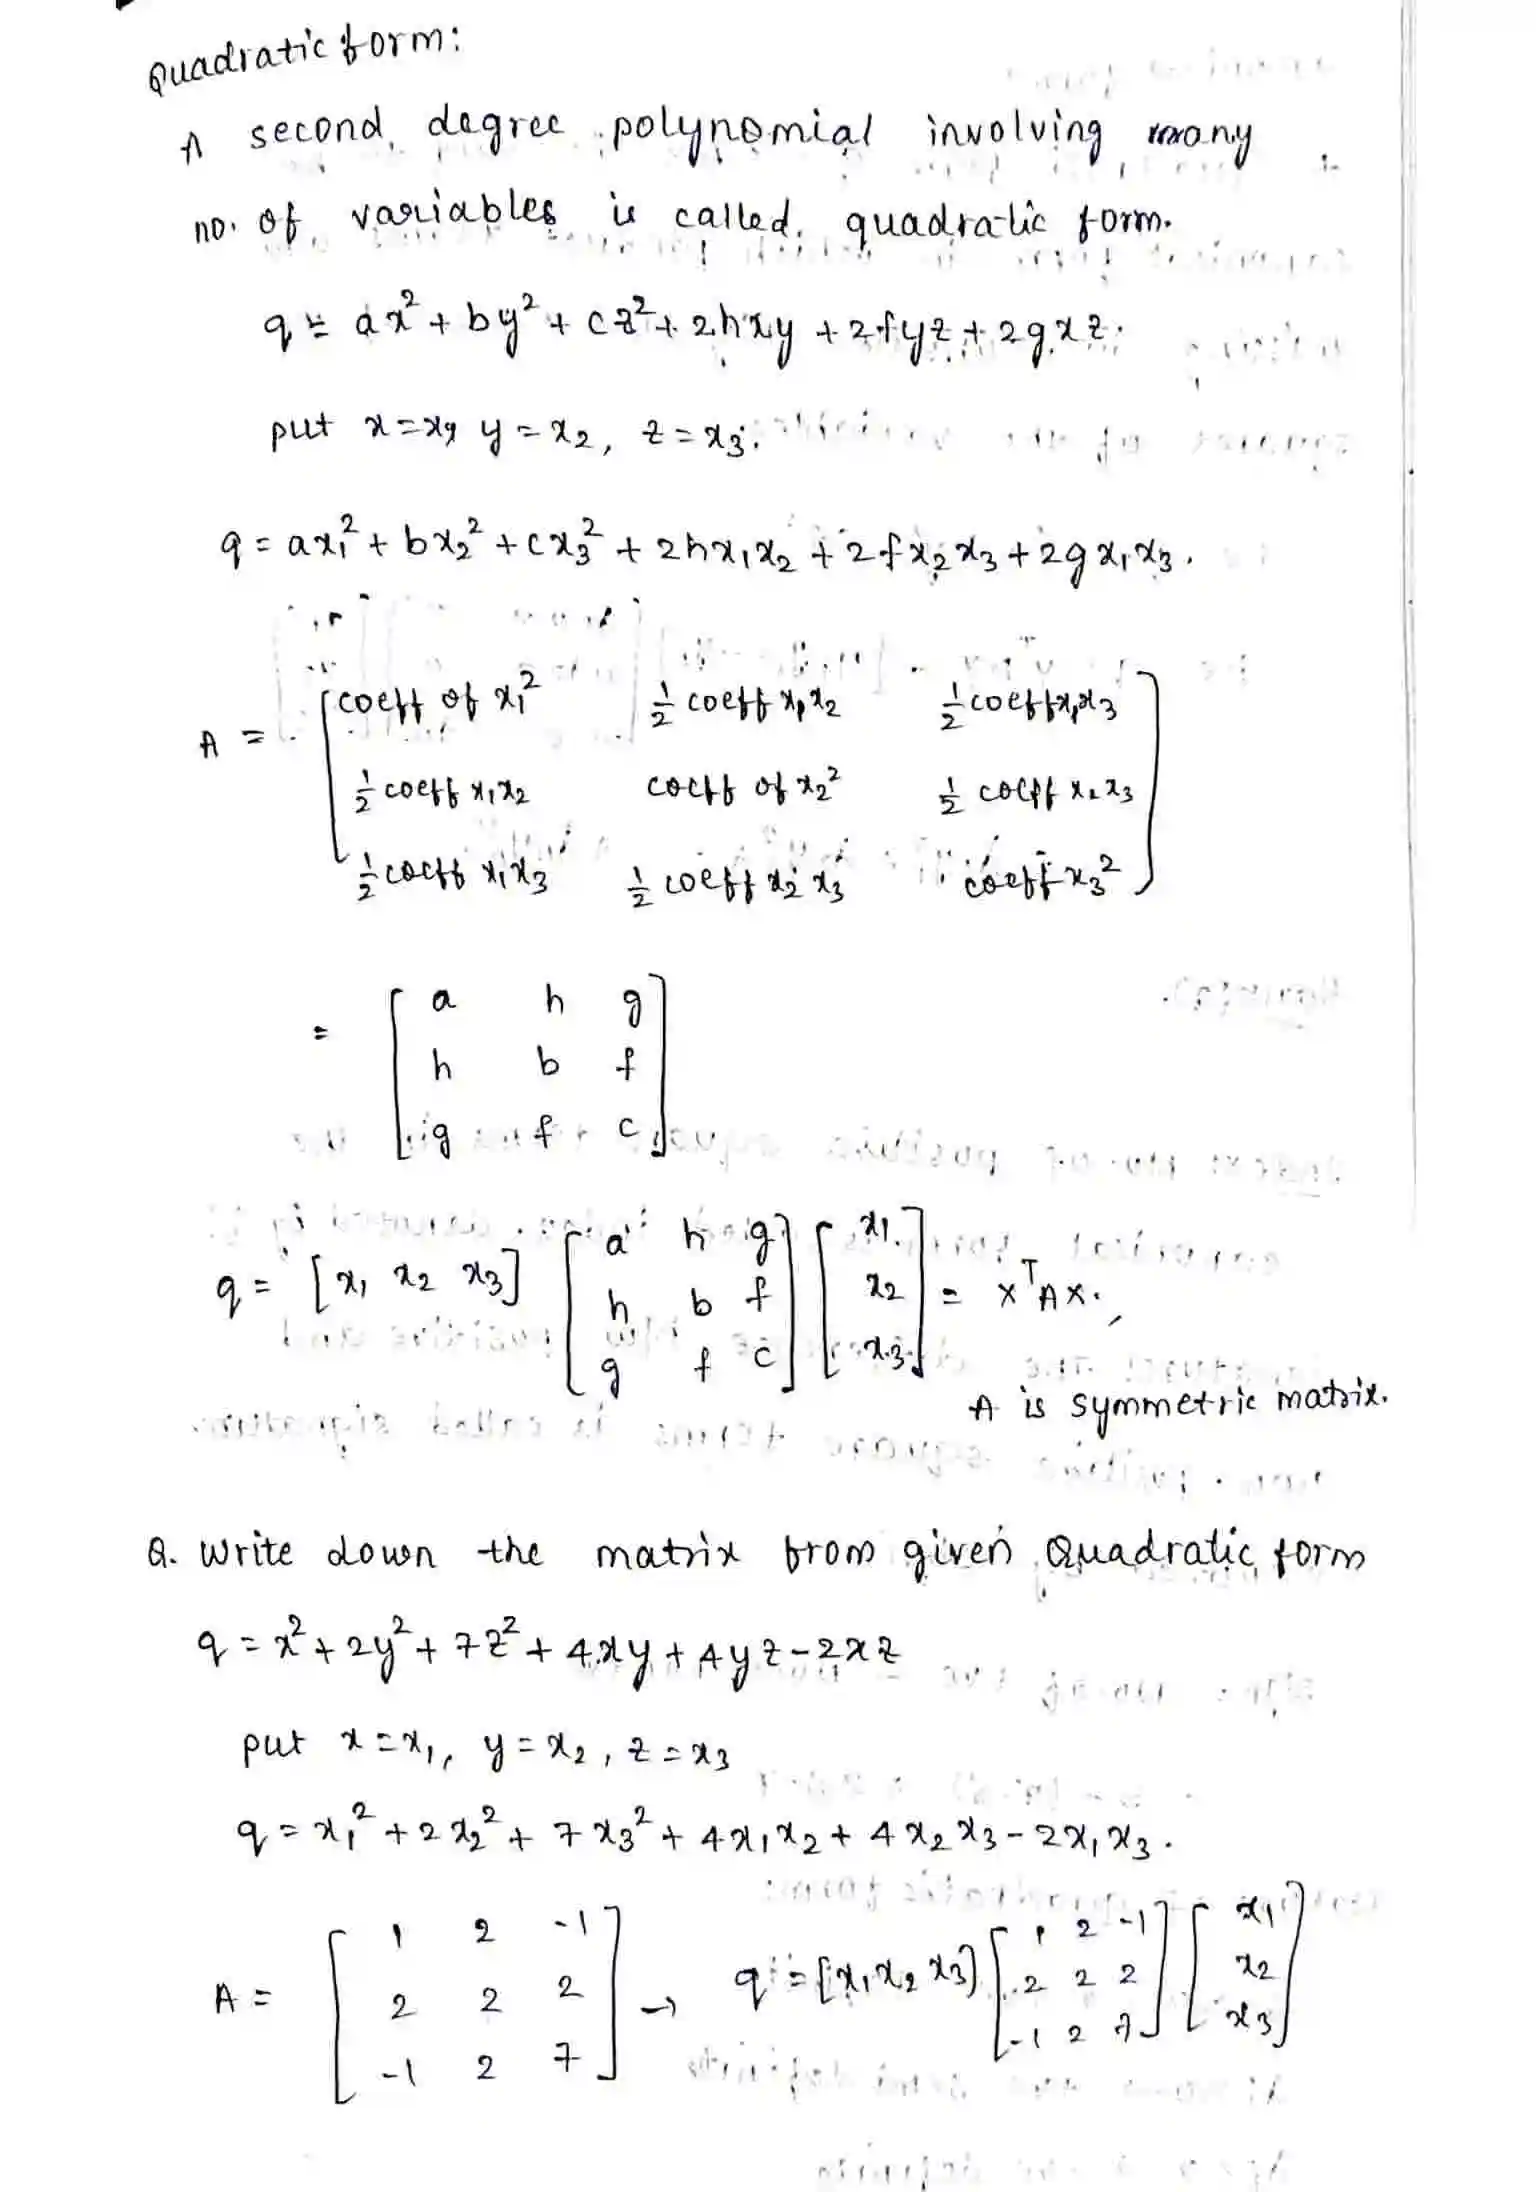 Quadratic form:
A second degree polynomial involving many
no. of variables is called quadratic form.
q = ax² + by² + cz² + 2hxy + 2fyz + 2gxz.
put x = x₁, y = x₂, z = x₃.
q = ax₁² + bx₂² + cx₃² + 2hx₁x₂ + 2fx₂x₃ + 2gx₁x₃.
A = [ coeff of x₁² ½ coeff x₁x₂ ½ coeff x₁x₃
½ coeff x₁x₂ coeff of x₂² ½ coeff x₂x₃
½ coeff x₁x₃ ½ coeff x₂x₃ coeff x₃² ]
= [ a h g
h b f
g f c ]
q = [x₁ x₂ x₃] [ a h g
h b f
g f c ] [ x₁
x₂
x₃ ] = XᵀAX.
A is symmetric matrix.
Q. Write down the matrix from given Quadratic form
q = x² + 2y² + 7z² + 4xy + 4yz - 2xz
put x = x₁, y = x₂, z = x₃
q = x₁² + 2x₂² + 7x₃² + 4x₁x₂ + 4x₂x₃ - 2x₁x₃.
A = [ 1 2 -1
2 2 2
-1 2 7 ] → q = [x₁ x₂ x₃] [ 1 2 -1
2 2 2
-1 2 7 ] [ x₁
x₂
x₃ ]